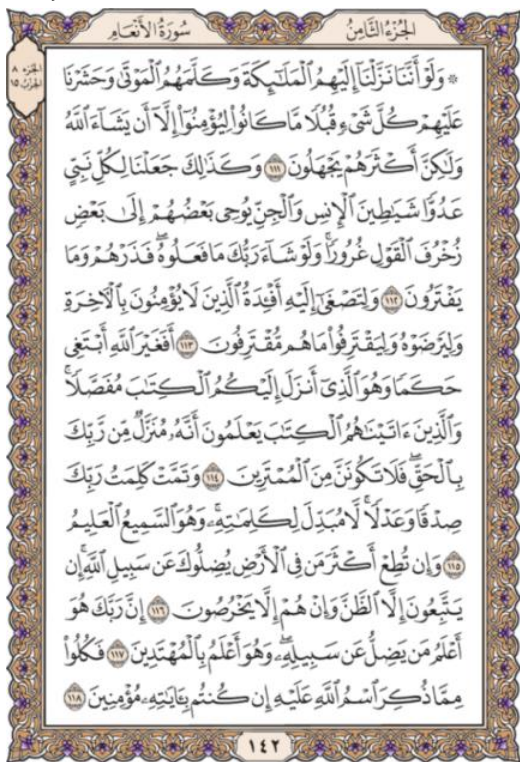 الجُزْءُ الثَّامِنُ سُورَةُ الأَنْعَامِ
الجزء ٨
الحزب ١٥
۞ وَلَوْ أَنَّنَا نَزَّلْنَآ إِلَيْهِمُ ٱلْمَلَٰٓئِكَةَ وَكَلَّمَهُمُ ٱلْمَوْتَىٰ وَحَشَرْنَا
عَلَيْهِمْ كُلَّ شَىْءٍ قُبُلًا مَّا كَانُوا۟ لِيُؤْمِنُوٓا۟ إِلَّآ أَن يَشَآءَ ٱللَّهُ
وَلَٰكِنَّ أَكْثَرَهُمْ يَجْهَلُونَ ١١١ وَكَذَٰلِكَ جَعَلْنَا لِكُلِّ نَبِىٍّ
عَدُوًّا شَيَٰطِينَ ٱلْإِنسِ وَٱلْجِنِّ يُوحِى بَعْضُهُمْ إِلَىٰ بَعْضٍ
زُخْرُفَ ٱلْقَوْلِ غُرُورًا ۚ وَلَوْ شَآءَ رَبُّكَ مَا فَعَلُوهُ ۖ فَذَرْهُمْ وَمَا
يَفْتَرُونَ ١١٢ وَلِتَصْغَىٰٓ إِلَيْهِ أَفْـِٔدَةُ ٱلَّذِينَ لَا يُؤْمِنُونَ بِٱلْءَاخِرَةِ
وَلِيَرْضَوْهُ وَلِيَقْتَرِفُوا۟ مَا هُم مُّقْتَرِفُونَ ١١٣ أَفَغَيْرَ ٱللَّهِ أَبْتَغِى
حَكَمًا وَهُوَ ٱلَّذِىٓ أَنزَلَ إِلَيْكُمُ ٱلْكِتَٰبَ مُفَصَّلًا ۚ
وَٱلَّذِينَ ءَاتَيْنَٰهُمُ ٱلْكِتَٰبَ يَعْلَمُونَ أَنَّهُۥ مُنَزَّلٌ مِّن رَّبِّكَ
بِٱلْحَقِّ ۖ فَلَا تَكُونَنَّ مِنَ ٱلْمُمْتَرِينَ ١١٤ وَتَمَّتْ كَلِمَتُ رَبِّكَ
صِدْقًا وَعَدْلًا ۚ لَّا مُبَدِّلَ لِكَلِمَٰتِهِۦ ۚ وَهُوَ ٱلسَّمِيعُ ٱلْعَلِيمُ
١١٥ وَإِن تُطِعْ أَكْثَرَ مَن فِى ٱلْأَرْضِ يُضِلُّوكَ عَن سَبِيلِ ٱللَّهِ ۚ إِن
يَتَّبِعُونَ إِلَّا ٱلظَّنَّ وَإِنْ هُمْ إِلَّا يَخْرُصُونَ ١١٦ إِنَّ رَبَّكَ هُوَ
أَعْلَمُ مَن يَضِلُّ عَن سَبِيلِهِۦ ۖ وَهُوَ أَعْلَمُ بِٱلْمُهْتَدِينَ ١١٧ فَكُلُوا۟
مِمَّا ذُكِرَ ٱسْمُ ٱللَّهِ عَلَيْهِ إِن كُنتُم بِـَٔايَٰتِهِۦ مُؤْمِنِينَ ١١٨
١٤٢